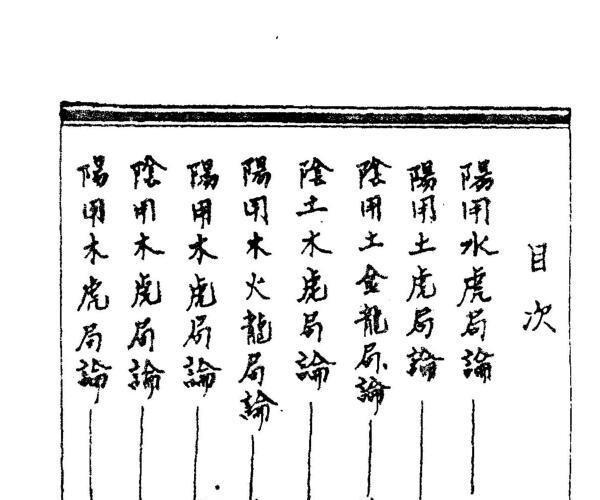 目次
陽用水虎局論
陽用土虎局論
陰用土金龍局論
陰土木虎局論
陽用木火龍局論
陽用木虎局論
陰用木虎局論
陽用木虎局論